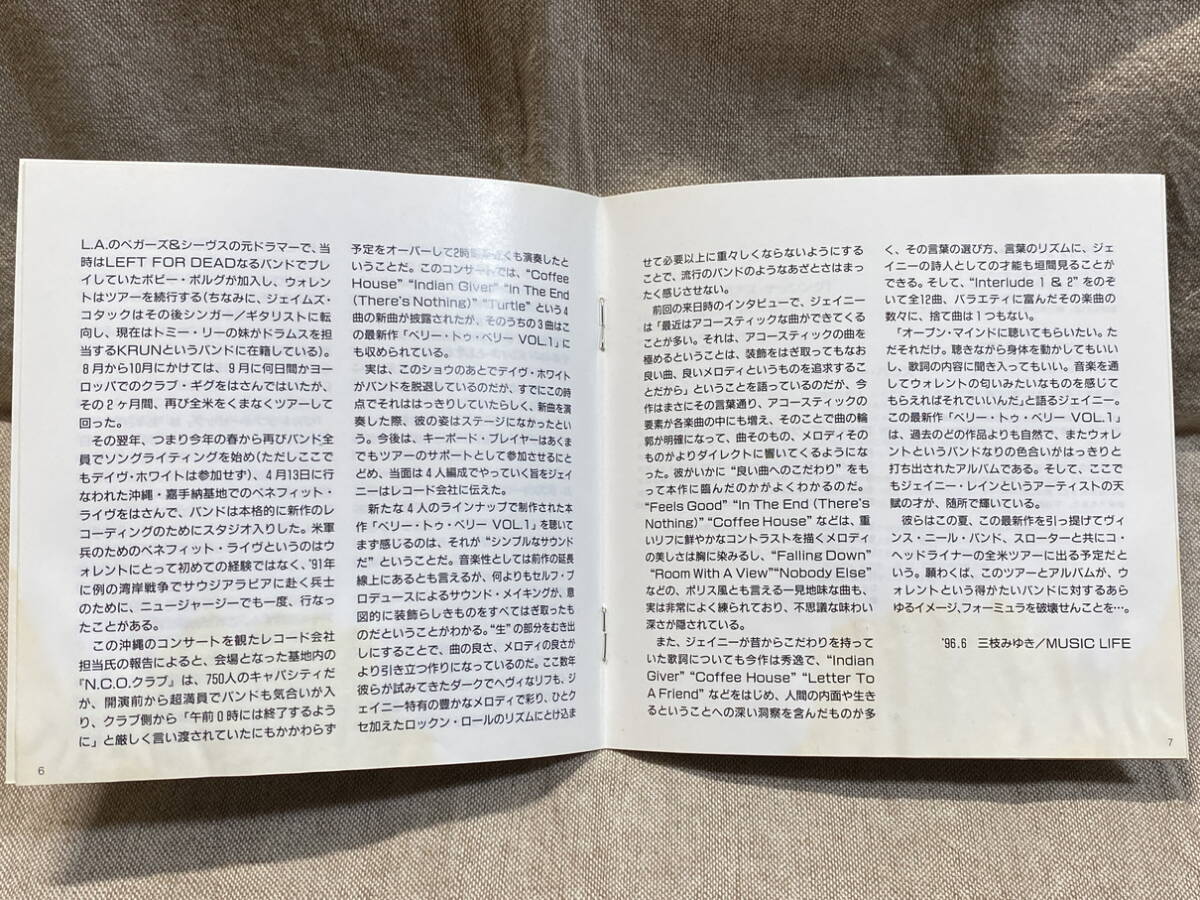 L.A.のベガーズ&シーヴスの元ドラマーで、当
時はLEFT FOR DEADなるバンドでプレ
イしていたボビー・ボルグが加入し、ウォレン
トはツアーを続行する(ちなみに、ジェイムズ・
コタックはその後シンガー/ギタリストに転
向し、現在はトミー・リーの妹がドラムスを担
当するKRUNというバンドに在籍している)。
8月から10月にかけては、9月に何日間かヨー
ロッパでのクラブ・ギグをはさんではいたが、
その2ヶ月間、再び全米をくまなくツアーして
回った。
その翌年、つまり今年の春から再びバンド全
員でソングライティングを始め(ただしここで
もデイヴ・ホワイトは参加せず)、4月13日に行
なわれた沖縄・嘉手納基地でのベネフィット・
ライヴをはさんで、バンドは本格的に新作のレ
コーディングのためにスタジオ入りした。米軍
兵のためのベネフィット・ライヴというのはウ
ォレントにとって初めての経験ではなく、'91年
に例の湾岸戦争でサウジアラビアに赴く兵士
のために、ニュージャージーでも一度、行なっ
たことがある。
この沖縄のコンサートを観たレコード会社
担当氏の報告によると、会場となった基地内の
『N.C.O.クラブ』は、750人のキャパシティだ
が、開演前から超満員でバンドも気合いが入
り、クラブ側から「午前0時には終了するよう
に」と厳しく言い渡されていたにもかかわらず
6
予定をオーバーして2時間近くも演奏したと
いうことだ。このコンサートでは、“Coffee
House” “Indian Giver” “In The End
(There's Nothing)” “Turtle” という4
曲の新曲が披露されたが、そのうちの3曲はこ
の最新作「ベリー・トゥ・ベリー VOL.1」に
も収められている。
実は、このショウのあとでデイヴ・ホワイト
がバンドを脱退しているのだが、すでにこの時
点でそれははっきりしていたらしく、新曲を演
奏した際、彼の姿はステージになかったとい
う。今後は、キーボード・プレイヤーはあくま
でもツアーのサポートとして参加させるにと
どめ、当面は4人編成でやっていく旨をジェイ
ニーはレコード会社に伝えた。
新たな4人のラインナップで制作された本
作「ベリー・トゥ・ベリー VOL.1」を聴いて
まず感じるのは、それが “シンプルなサウンド
だ” ということだ。音楽性としては前作の延長
線上にあるとも言えるが、何よりもセルフ・プ
ロデュースによるサウンド・メイキングが、意
図的に装飾らしきものをすべてはぎ取ったも
のだということがわかる。“生” の部分をむき出
しにすることで、曲の良さ、メロディの良さが
より引き立つ作りになっているのだ。ここ数年
彼らが試みてきたダークでヘヴィなリフも、ジ
ェイニー特有の豊かなメロディで彩り、ひとク
セ加えたロックン・ロールのリズムにとけ込ま
せて必要以上に重々しくならないようにする
ことで、流行のバンドのようなあざとさはまっ
たく感じさせない。
前回の来日時のインタビューで、ジェイニー
は「最近はアコースティックな曲ができてくる
ことが多い。それは、アコースティックの曲を
極めるということは、装飾をはぎ取ってもなお
良い曲、良いメロディというものを追求するこ
とだから」ということを語っているのだが、今
作はまさにその言葉通り、アコースティックの
要素が各楽曲の中にも増え、そのことで曲の輪
郭が明確になって、曲そのもの、メロディその
ものがよりダイレクトに響いてくるようにな
った。彼がいかに “良い曲へのこだわり” をも
って本作に臨んだのかがよくわかるのだ。
“Feels Good” “In The End (There's
Nothing)” “Coffee House” などは、重
いリフに鮮やかなコントラストを描くメロディ
の美しさは胸に染みるし、“Falling Down”
“Room With A View”“Nobody Else”
などの、ポリス風とも言える一見地味な曲も、
実は非常によく練られており、不思議な味わい
深さが隠されている。
また、ジェイニーが昔からこだわりを持って
いた歌詞についても今作は秀逸で、“Indian
Giver” “Coffee House” “Letter To
A Friend” などをはじめ、人間の内面や生き
るということへの深い洞察を含んだものが多
く、その言葉の選び方、言葉のリズムに、ジェ
イニーの詩人としての才能も垣間見ることが
できる。そして、“Interlude 1 & 2” をのぞ
いて全12曲、バラエティに富んだその楽曲の
数々に、捨て曲は1つもない。
「オープン・マインドに聴いてもらいたい。た
だそれだけ。聴きながら身体を動かしてもいい
し、歌詞の内容に聞き入ってもいい。音楽を通
してウォレントの匂いみたいなものを感じて
もらえればそれでいいんだ」と語るジェイニー。
この最新作「ベリー・トゥ・ベリー VOL.1」
は、過去のどの作品よりも自然で、またウォレ
ントというバンドなりの色合いがはっきりと
打ち出されたアルバムである。そして、ここで
もジェイニー・レインというアーティストの天
賦の才が、随所で輝いている。
彼らはこの夏、この最新作を引っ提げてヴィ
ンス・ニール・バンド、スローターと共にコ・
ヘッドライナーの全米ツアーに出る予定だと
いう。願わくば、このツアーとアルバムが、ウ
ォレントという得かたいバンドに対するあら
ゆるイメージ、フォーミュラを破壊せんことを…。
'96.6 三枝みゆき/MUSIC LIFE
7